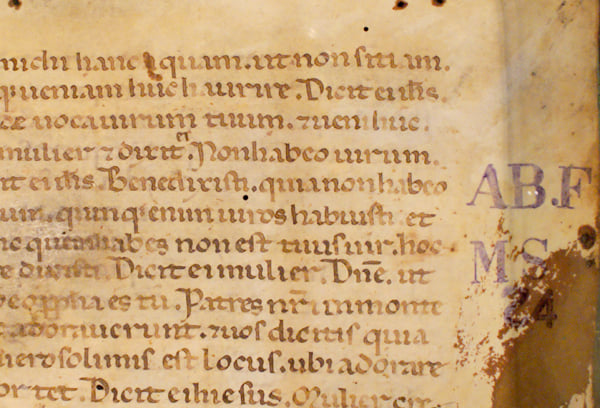 michi hanc aquam. ut non sitiam.
queniam huic haurire. Dicit ei ihs.
uoca uirum tuum. ⁊ ueni huc.
mulier ⁊ dixit et. Non habeo uirum.
it ei ihs. Bene dixisti. quia non habeo
uirum. quinq; enim uiros habuisti et
nc quem habes non est tuus uir. hoc
re dixisti. Dicit ei mulier. Dñe. ut
es tu. Patres nr̃i in monte
adorauerunt. ⁊ uos dicitis quia
ierosolimis est locus. ubi adorare
or tet. Dicit ei ihesus. Mulier cre
AB.F
MS
24